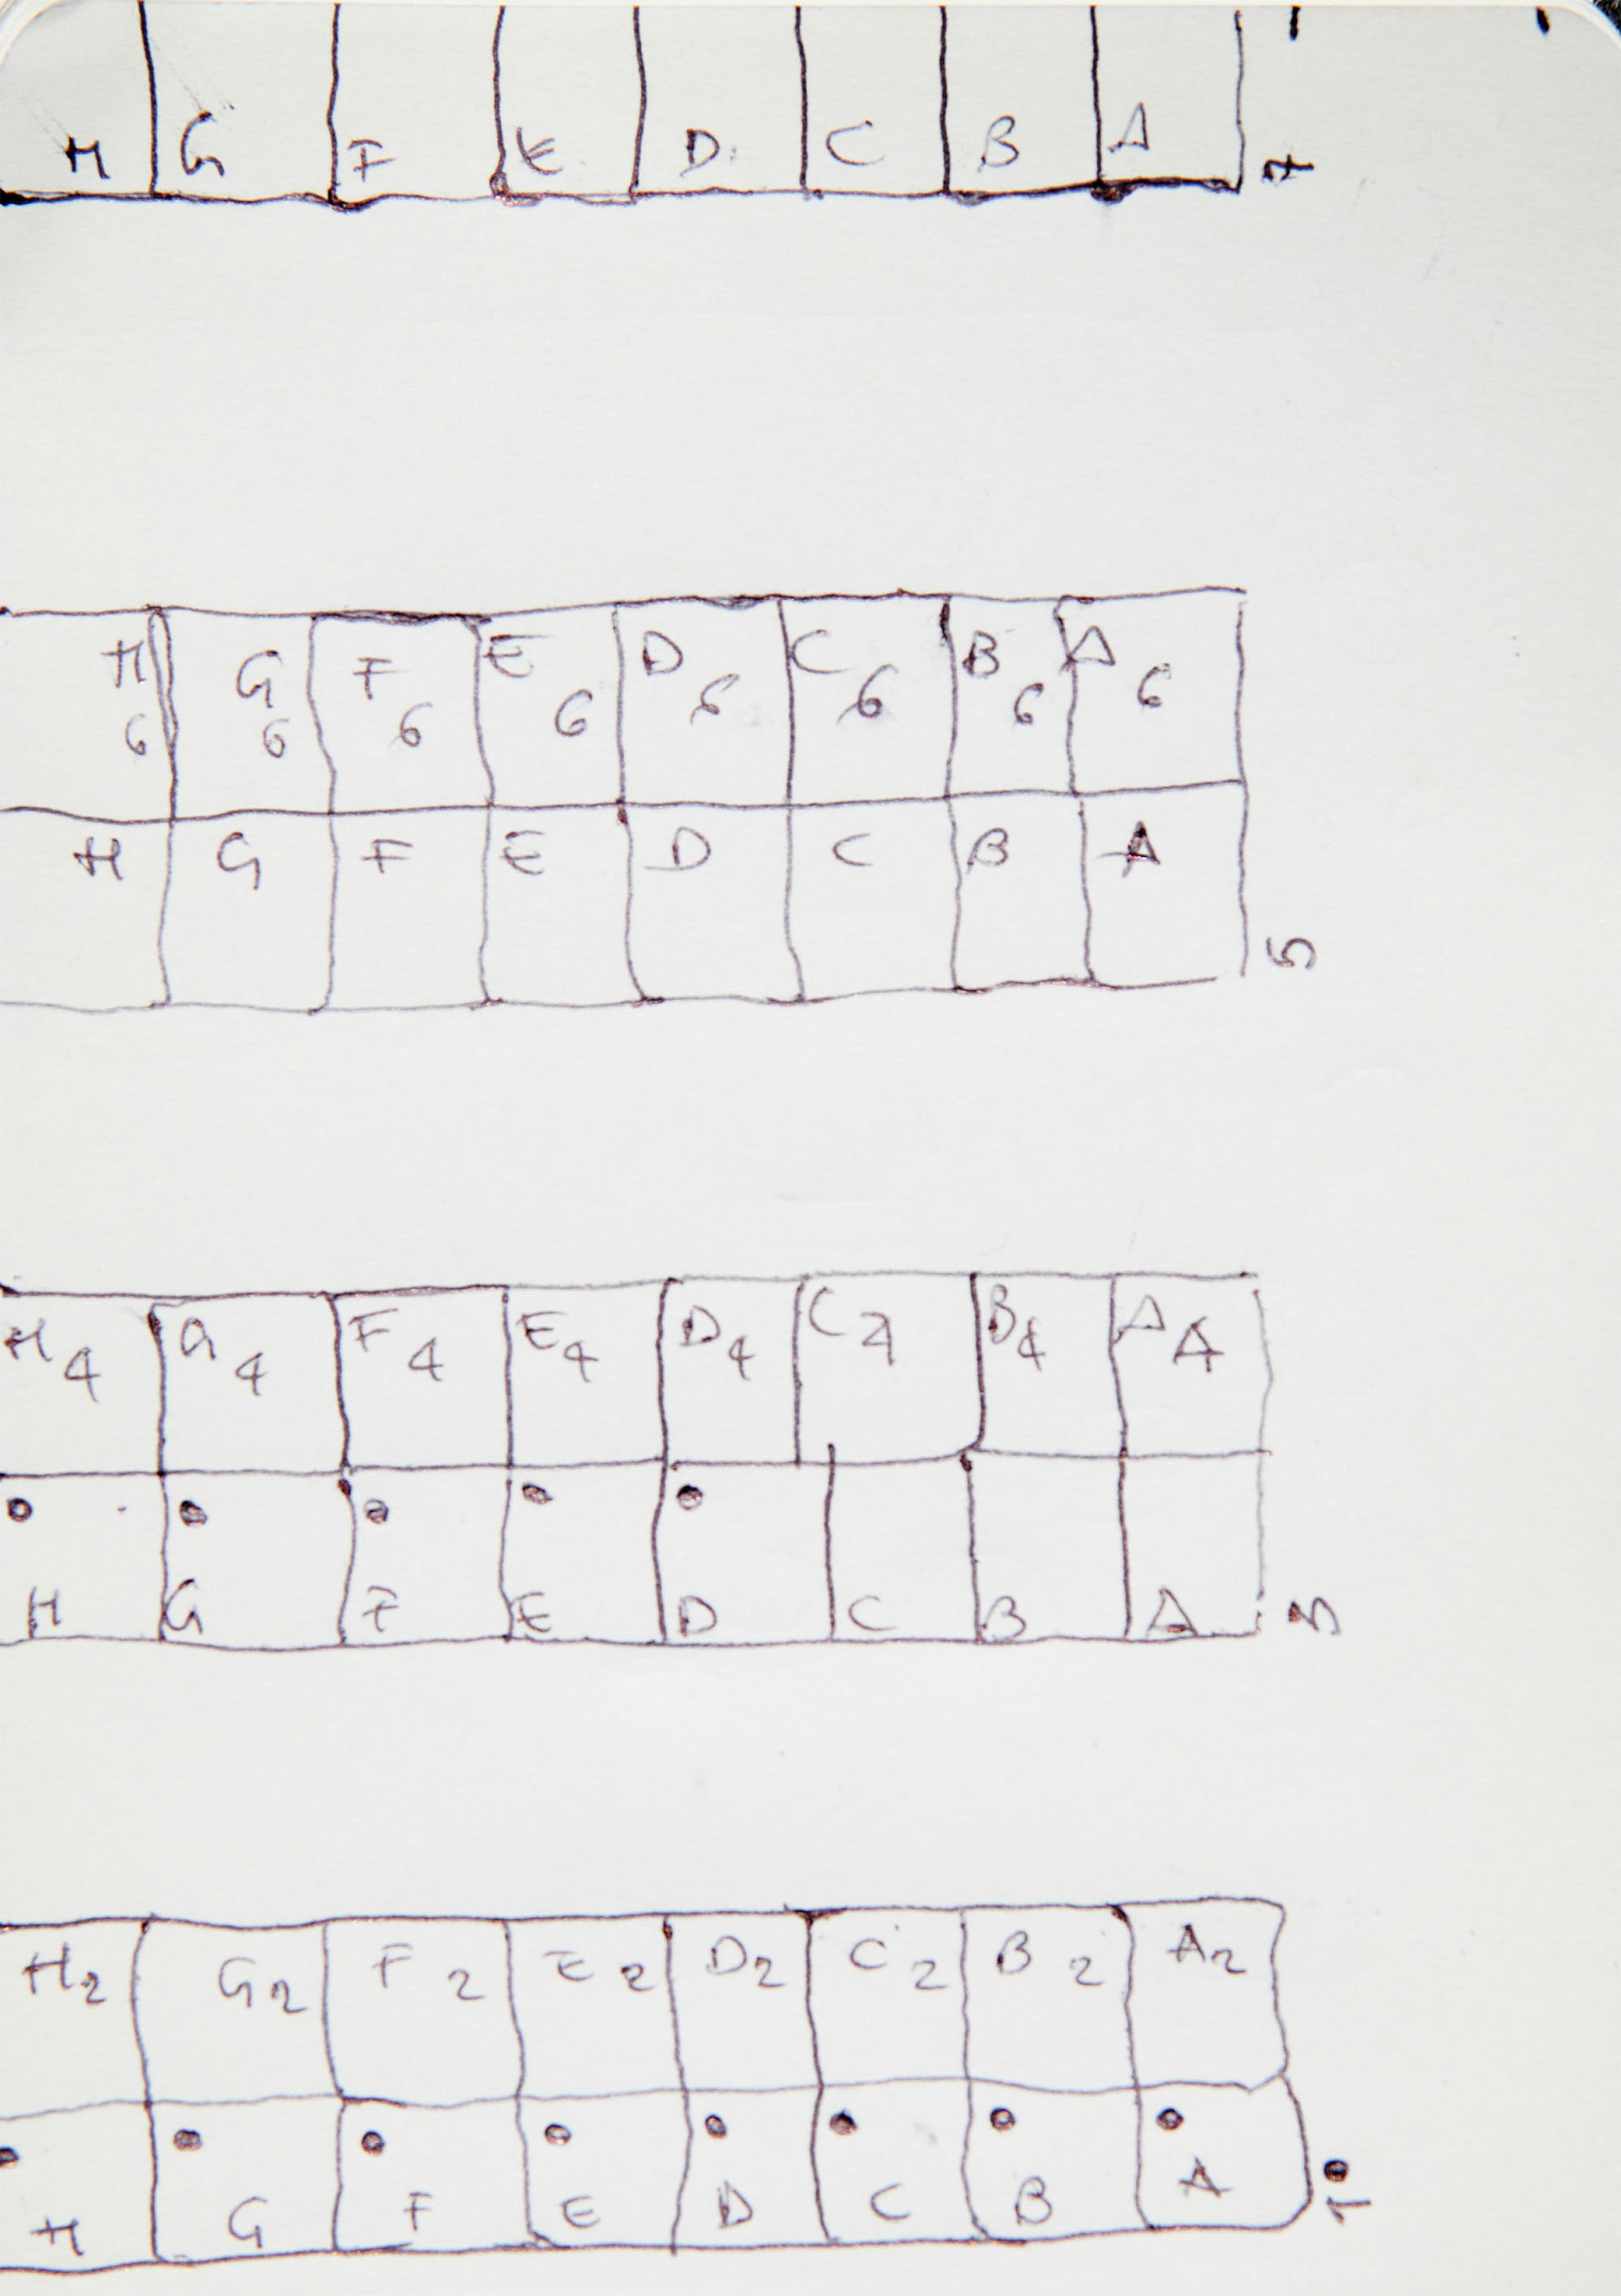 H G F E D C B A 7
H6 G6 F6 E6 D6 C6 B6 A6
H G F E D C B A 5
H4 G4 F4 E4 D4 C4 B4 A4
H G F E D C B A 3
H2 G2 F2 E2 D2 C2 B2 A2
H G F E D C B A 1